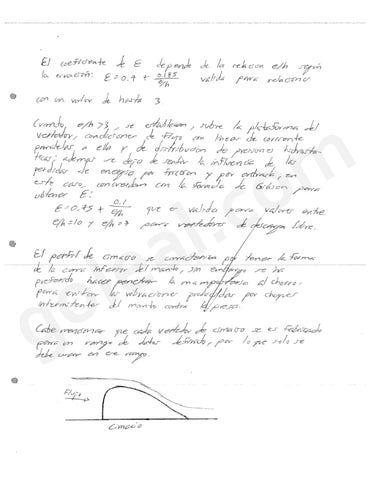 El coeficiente de E depende de la relacion e/h según
la ecuación: E = 0.7 + 0.185/e/h valida para relaciones
con un valor de hasta 3
Cuando, e/h > 3, se establecen, sobre la plataforma del
vertedor, condiciones de flujo con lineas de corriente
paralelas, a ella y de distribucion de presiones hidrosta-
ticas; ademas se deja de sentir la influencia de las
perdidas de energia por friccion y por entrada, en
este caso, concuerdan con la formula de Gibson para
obtener E:
E = 0.75 + 0.1/e/h que es valida para valores entre
e/h = 10 y e/h = 3 para vertedores de descarga libre.
El perfil de cimacio se caracteriza por tener la forma
de la curva inferior del manto, sin embargo, se ha
preferido hacer penetrar la mamposteria al chorro,
para evitar las vibraciones producidas por choques
intermitentes del manto contra la presa.
Cabe mencionar que cada vertedor de cimacio se es fabricado
para un rango de datos definido, por lo que solo se
debe usar en ese rango.
Flujo
Cimacio